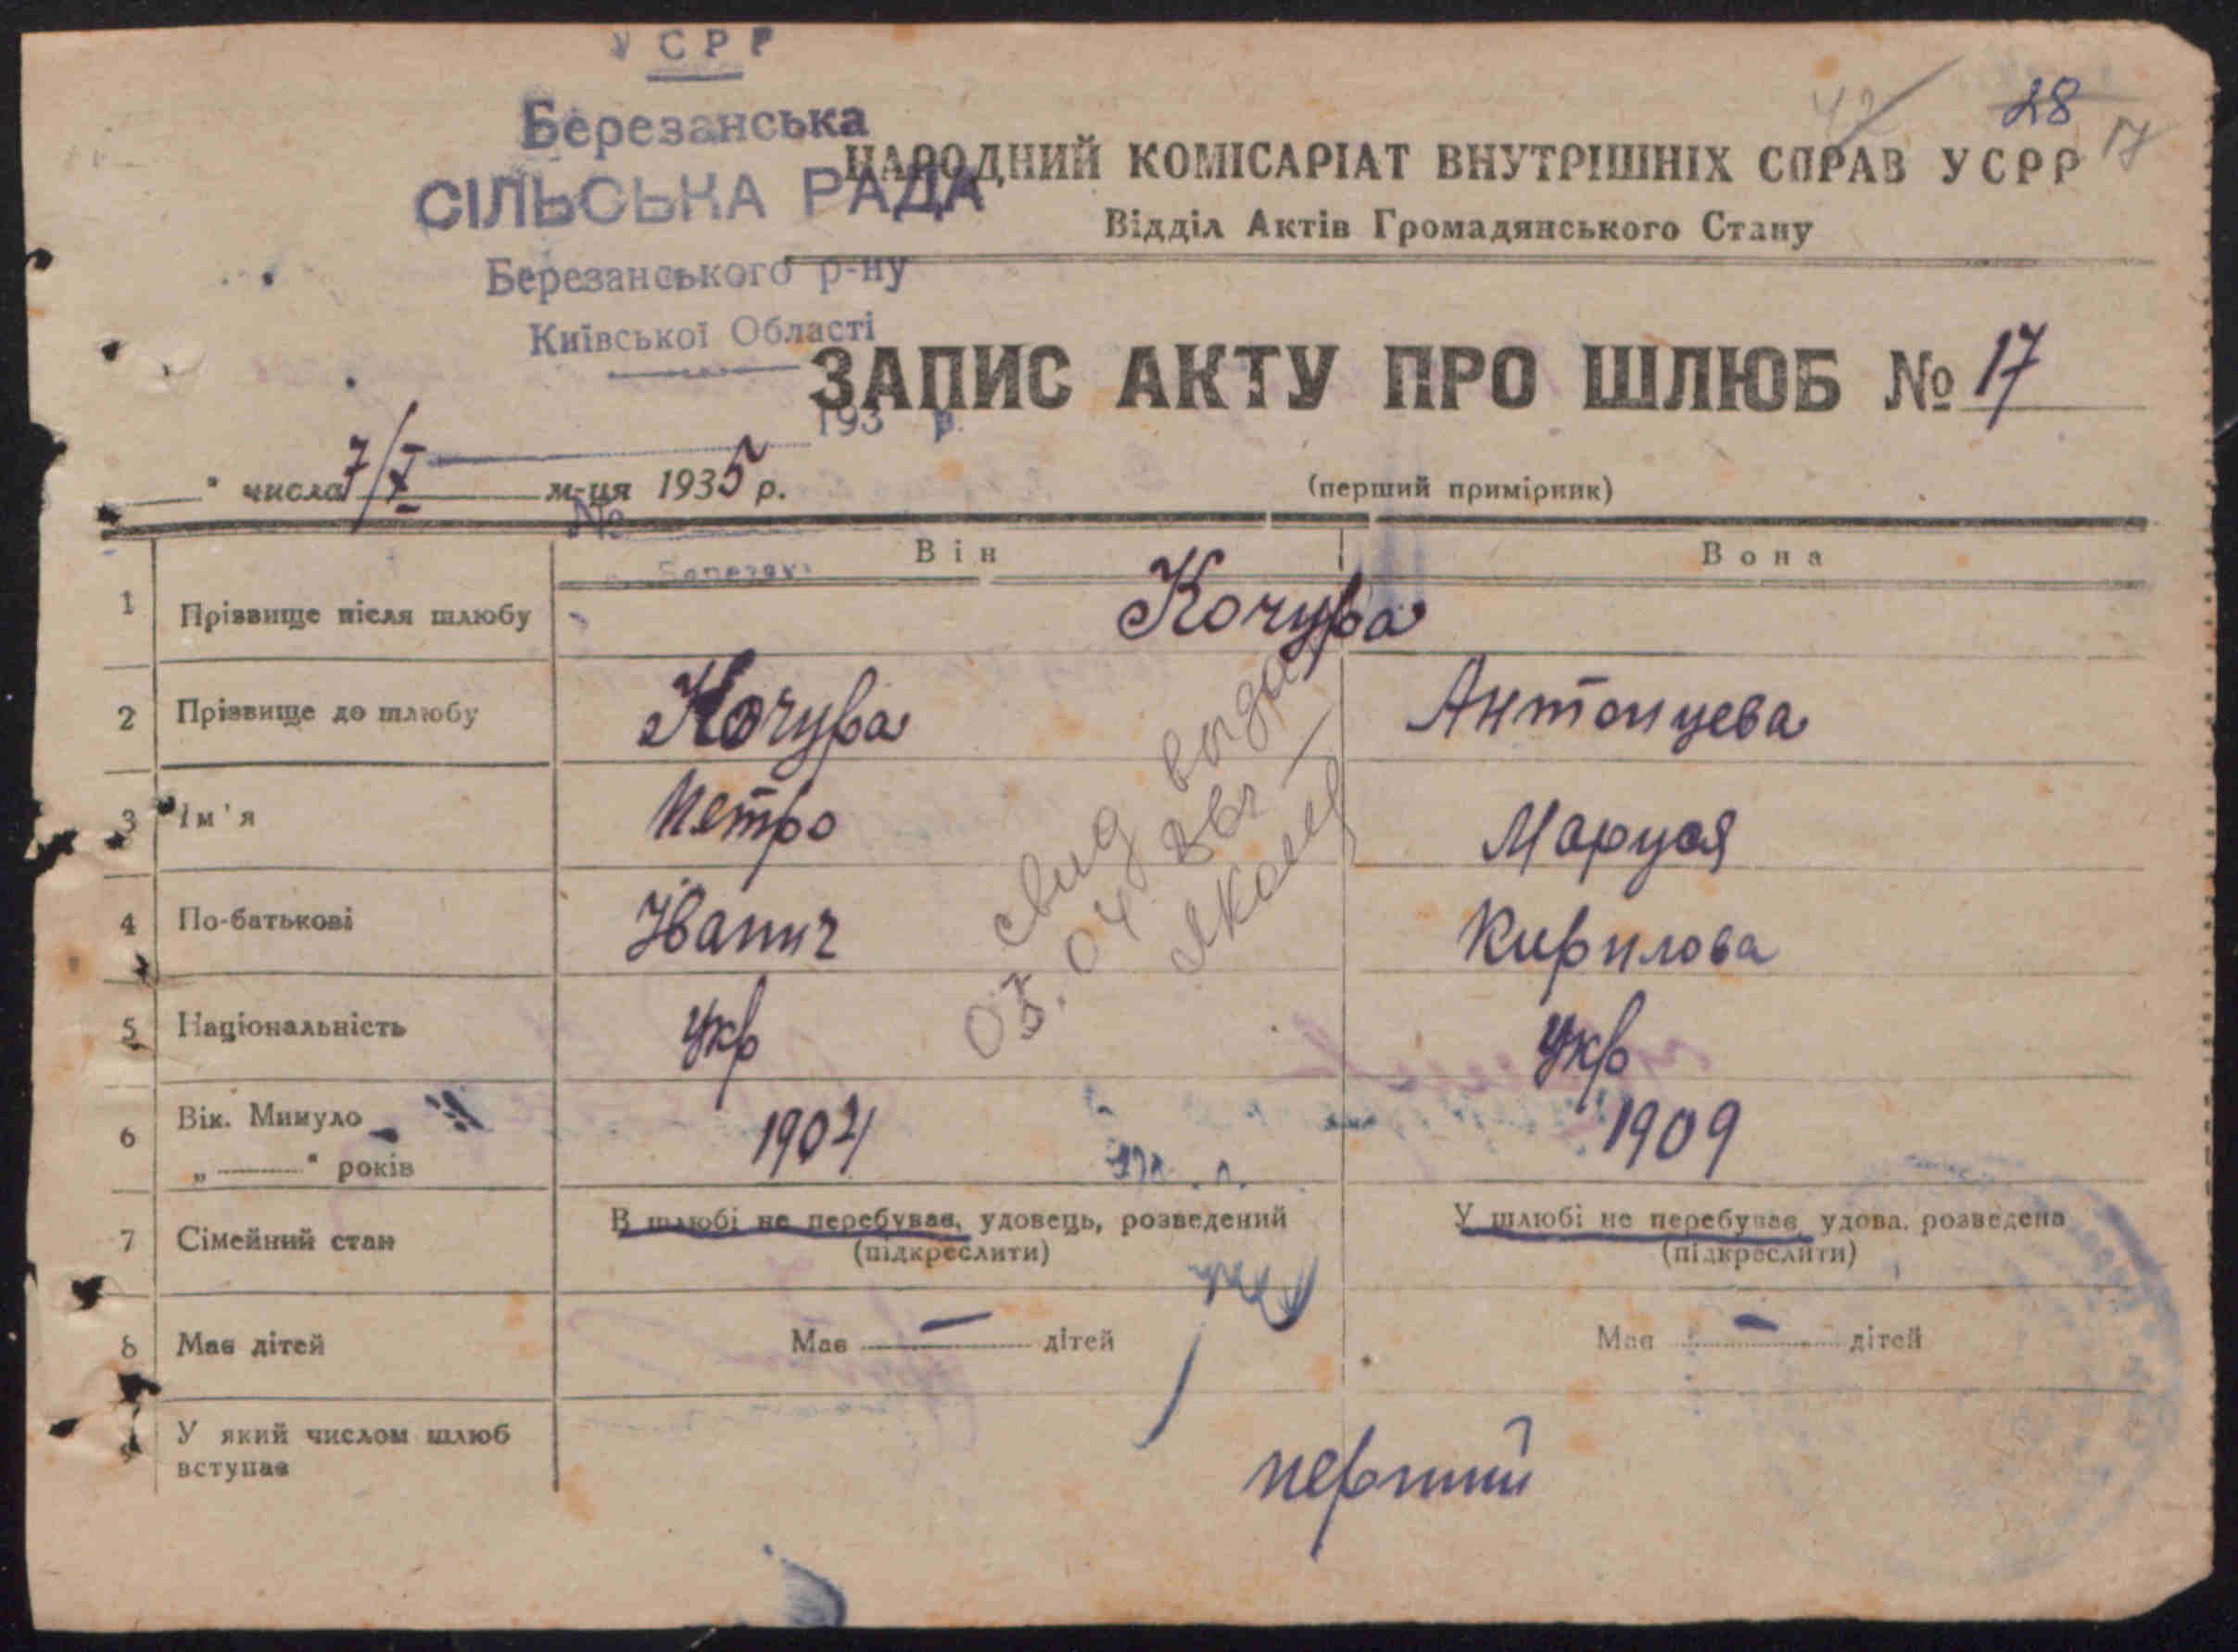 УСРР
Березанська
СІЛЬСЬКА РАДА
Березанського р-ну
Київської Області
193 р.
№
28
17
НАРОДНИЙ КОМІСАРІАТ ВНУТРІШНІХ СПРАВ УСРР
Відділ Актів Громадянського Стану
ЗАПИС АКТУ ПРО ШЛЮБ № 17
" числа 7/X м-ця 1935 р.
(перший примірник)
Він Вона
1 Прізвище після шлюбу Кочура
2 Прізвище до шлюбу Кочура Антонцева
3 Ім'я Петро Маруся
4 По-батькові Іванич Кирилова
5 Національність укр укр
6 Вік. Минуло 1904 1909
„ " років
7 Сімейний стан В шлюбі не перебував, удовець, розведений У шлюбі не перебуває, удова, розведена
(підкреслити) (підкреслити)
8 Має дітей Має — дітей Має — дітей
9 У який числом шлюб
вступає
перший
свид выдан
03.04